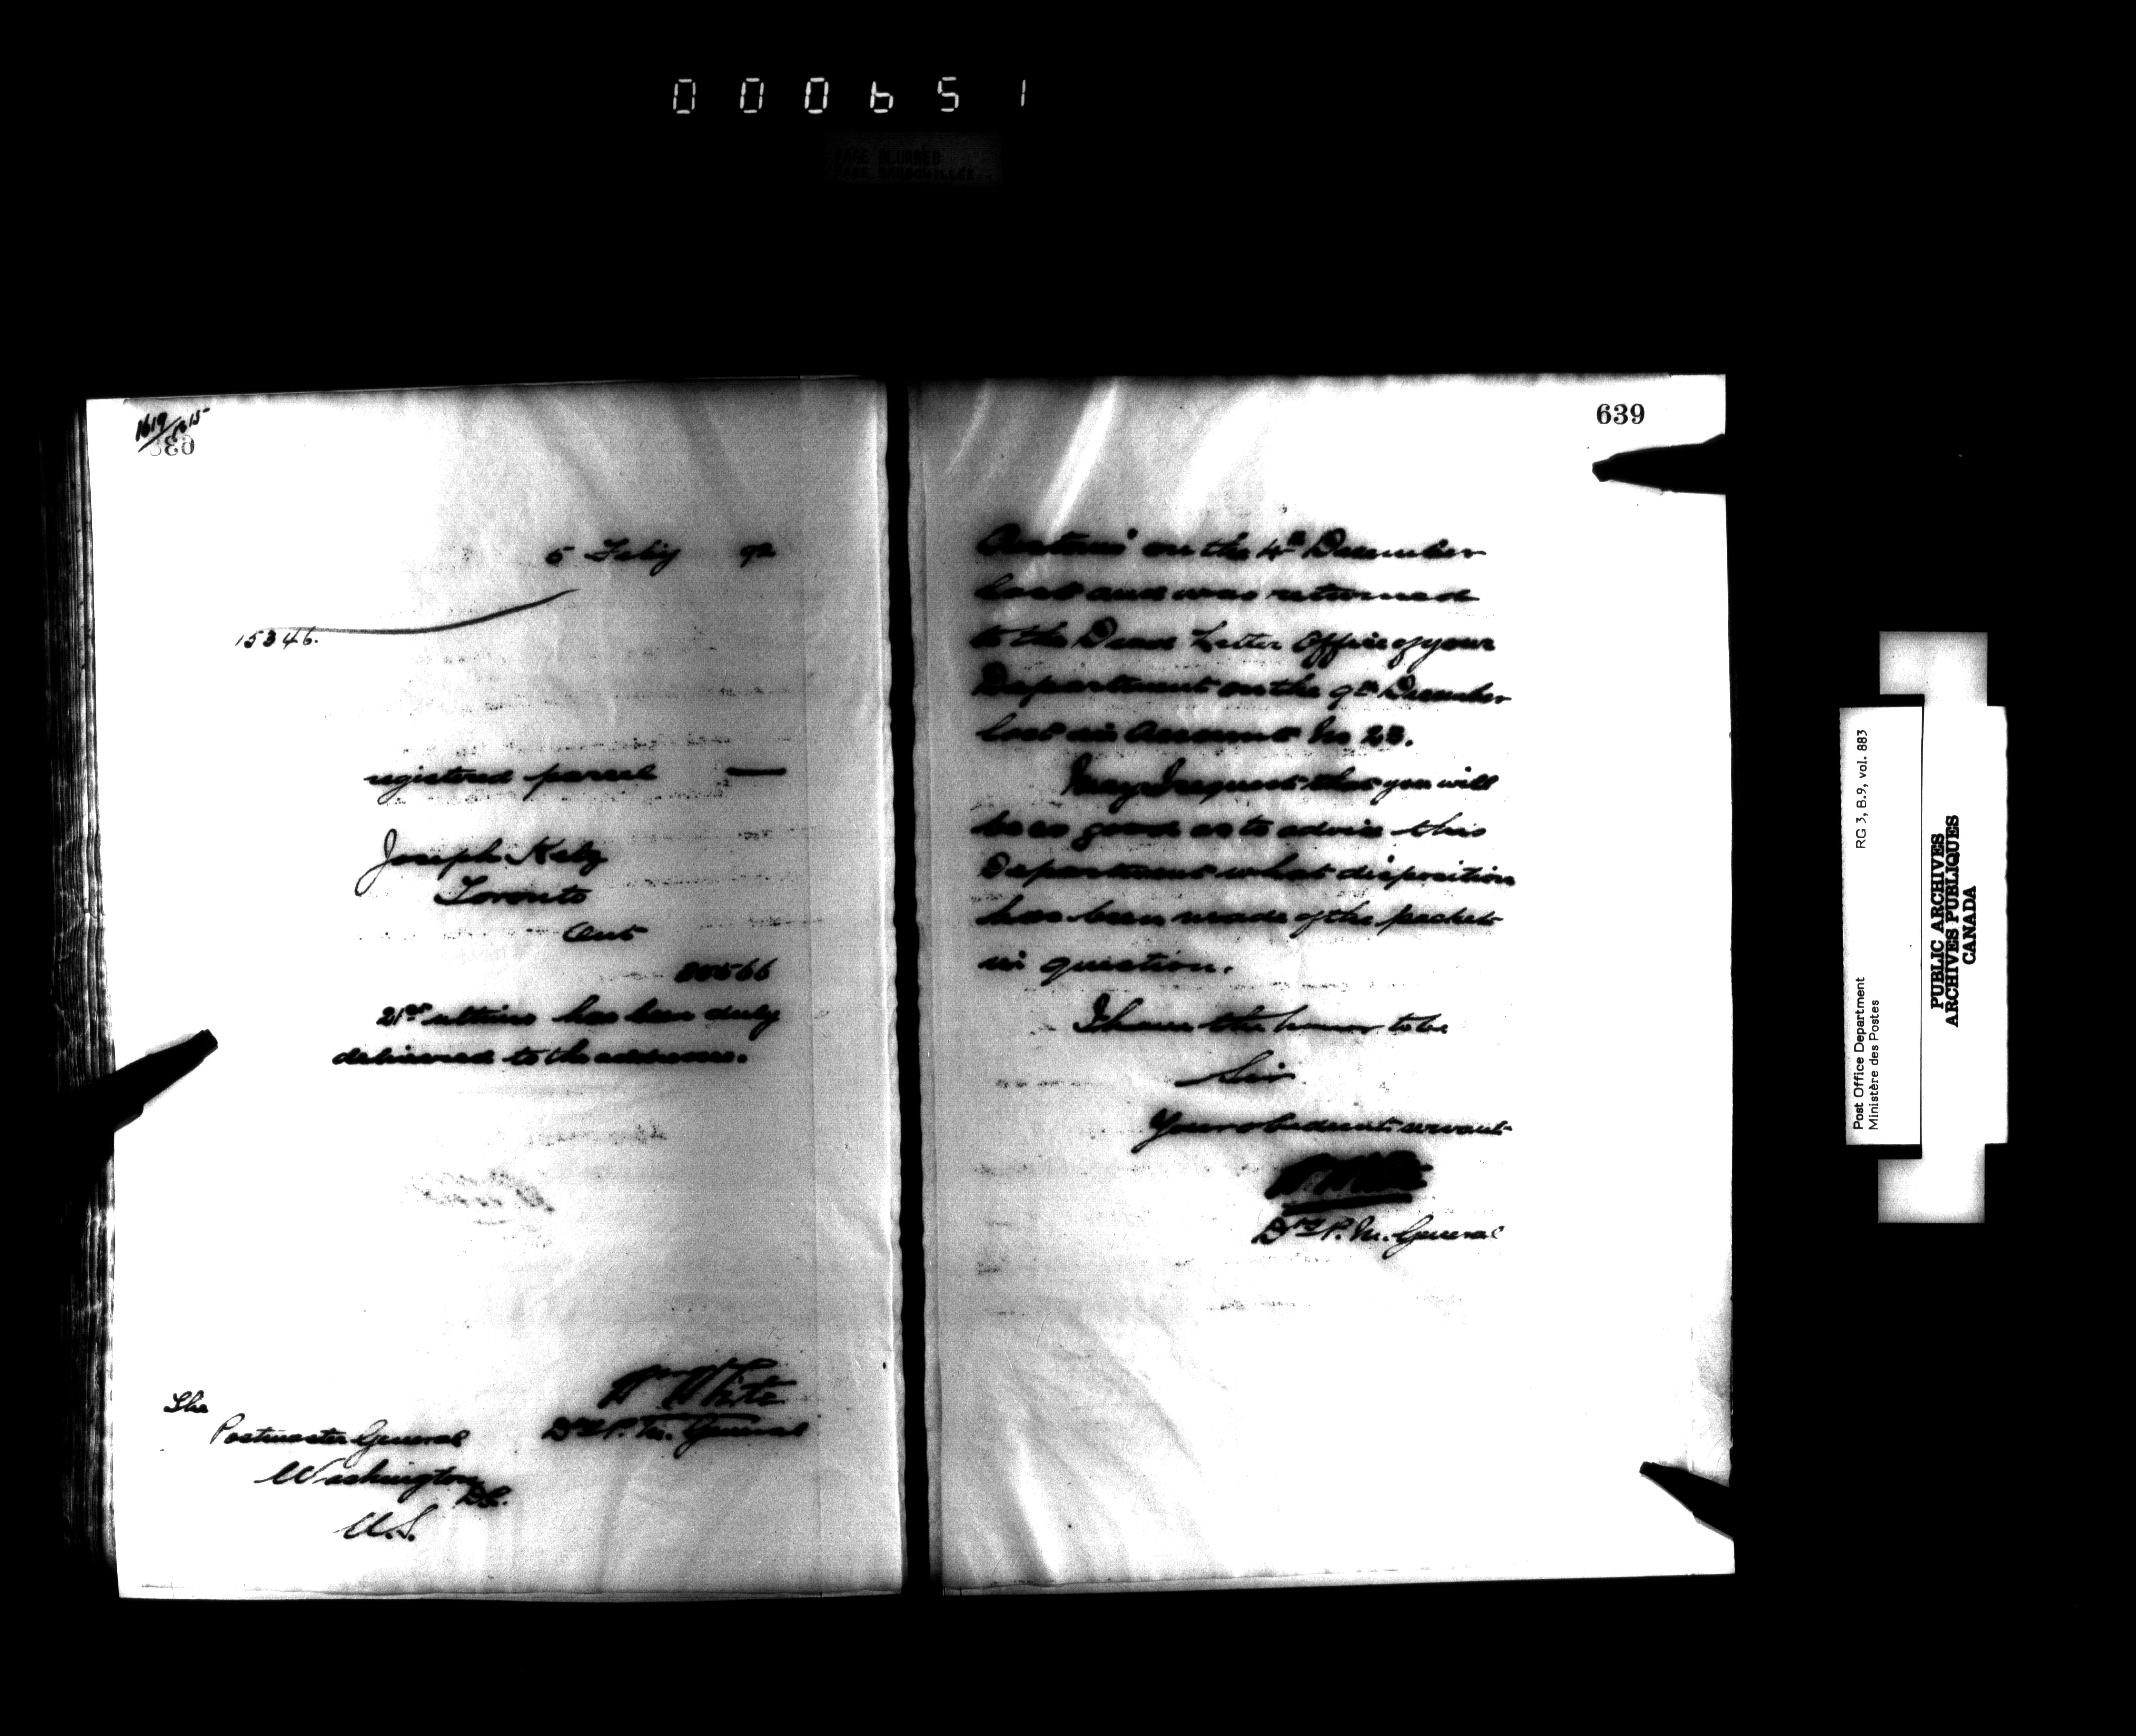 000651
PAGE BLURRED
PAGE BARBOUILLÉE
1619
5 Feby 92
15346.
registered parcel —
Joseph
Toronto
Ont
80566
21st ultimo has been duly
delivered to the addressee.
W White
Dy P. M. General
The
Postmaster General
Washington
D.C.
U.S.
639
Customs on the 4th December
last and was returned
to the Dead Letter Office of your
Department on the 9th December
last in Account No 23.
May I request that you will
be so good as to advise this
Department what disposition
has been made of the packet
in question.
I have the honor to be
Sir
Your obedient servant
W. White
Dy P. M. General
Post Office Department
Ministère des Postes
RG 3, B.9, vol. 883
PUBLIC ARCHIVES
ARCHIVES PUBLIQUES
CANADA